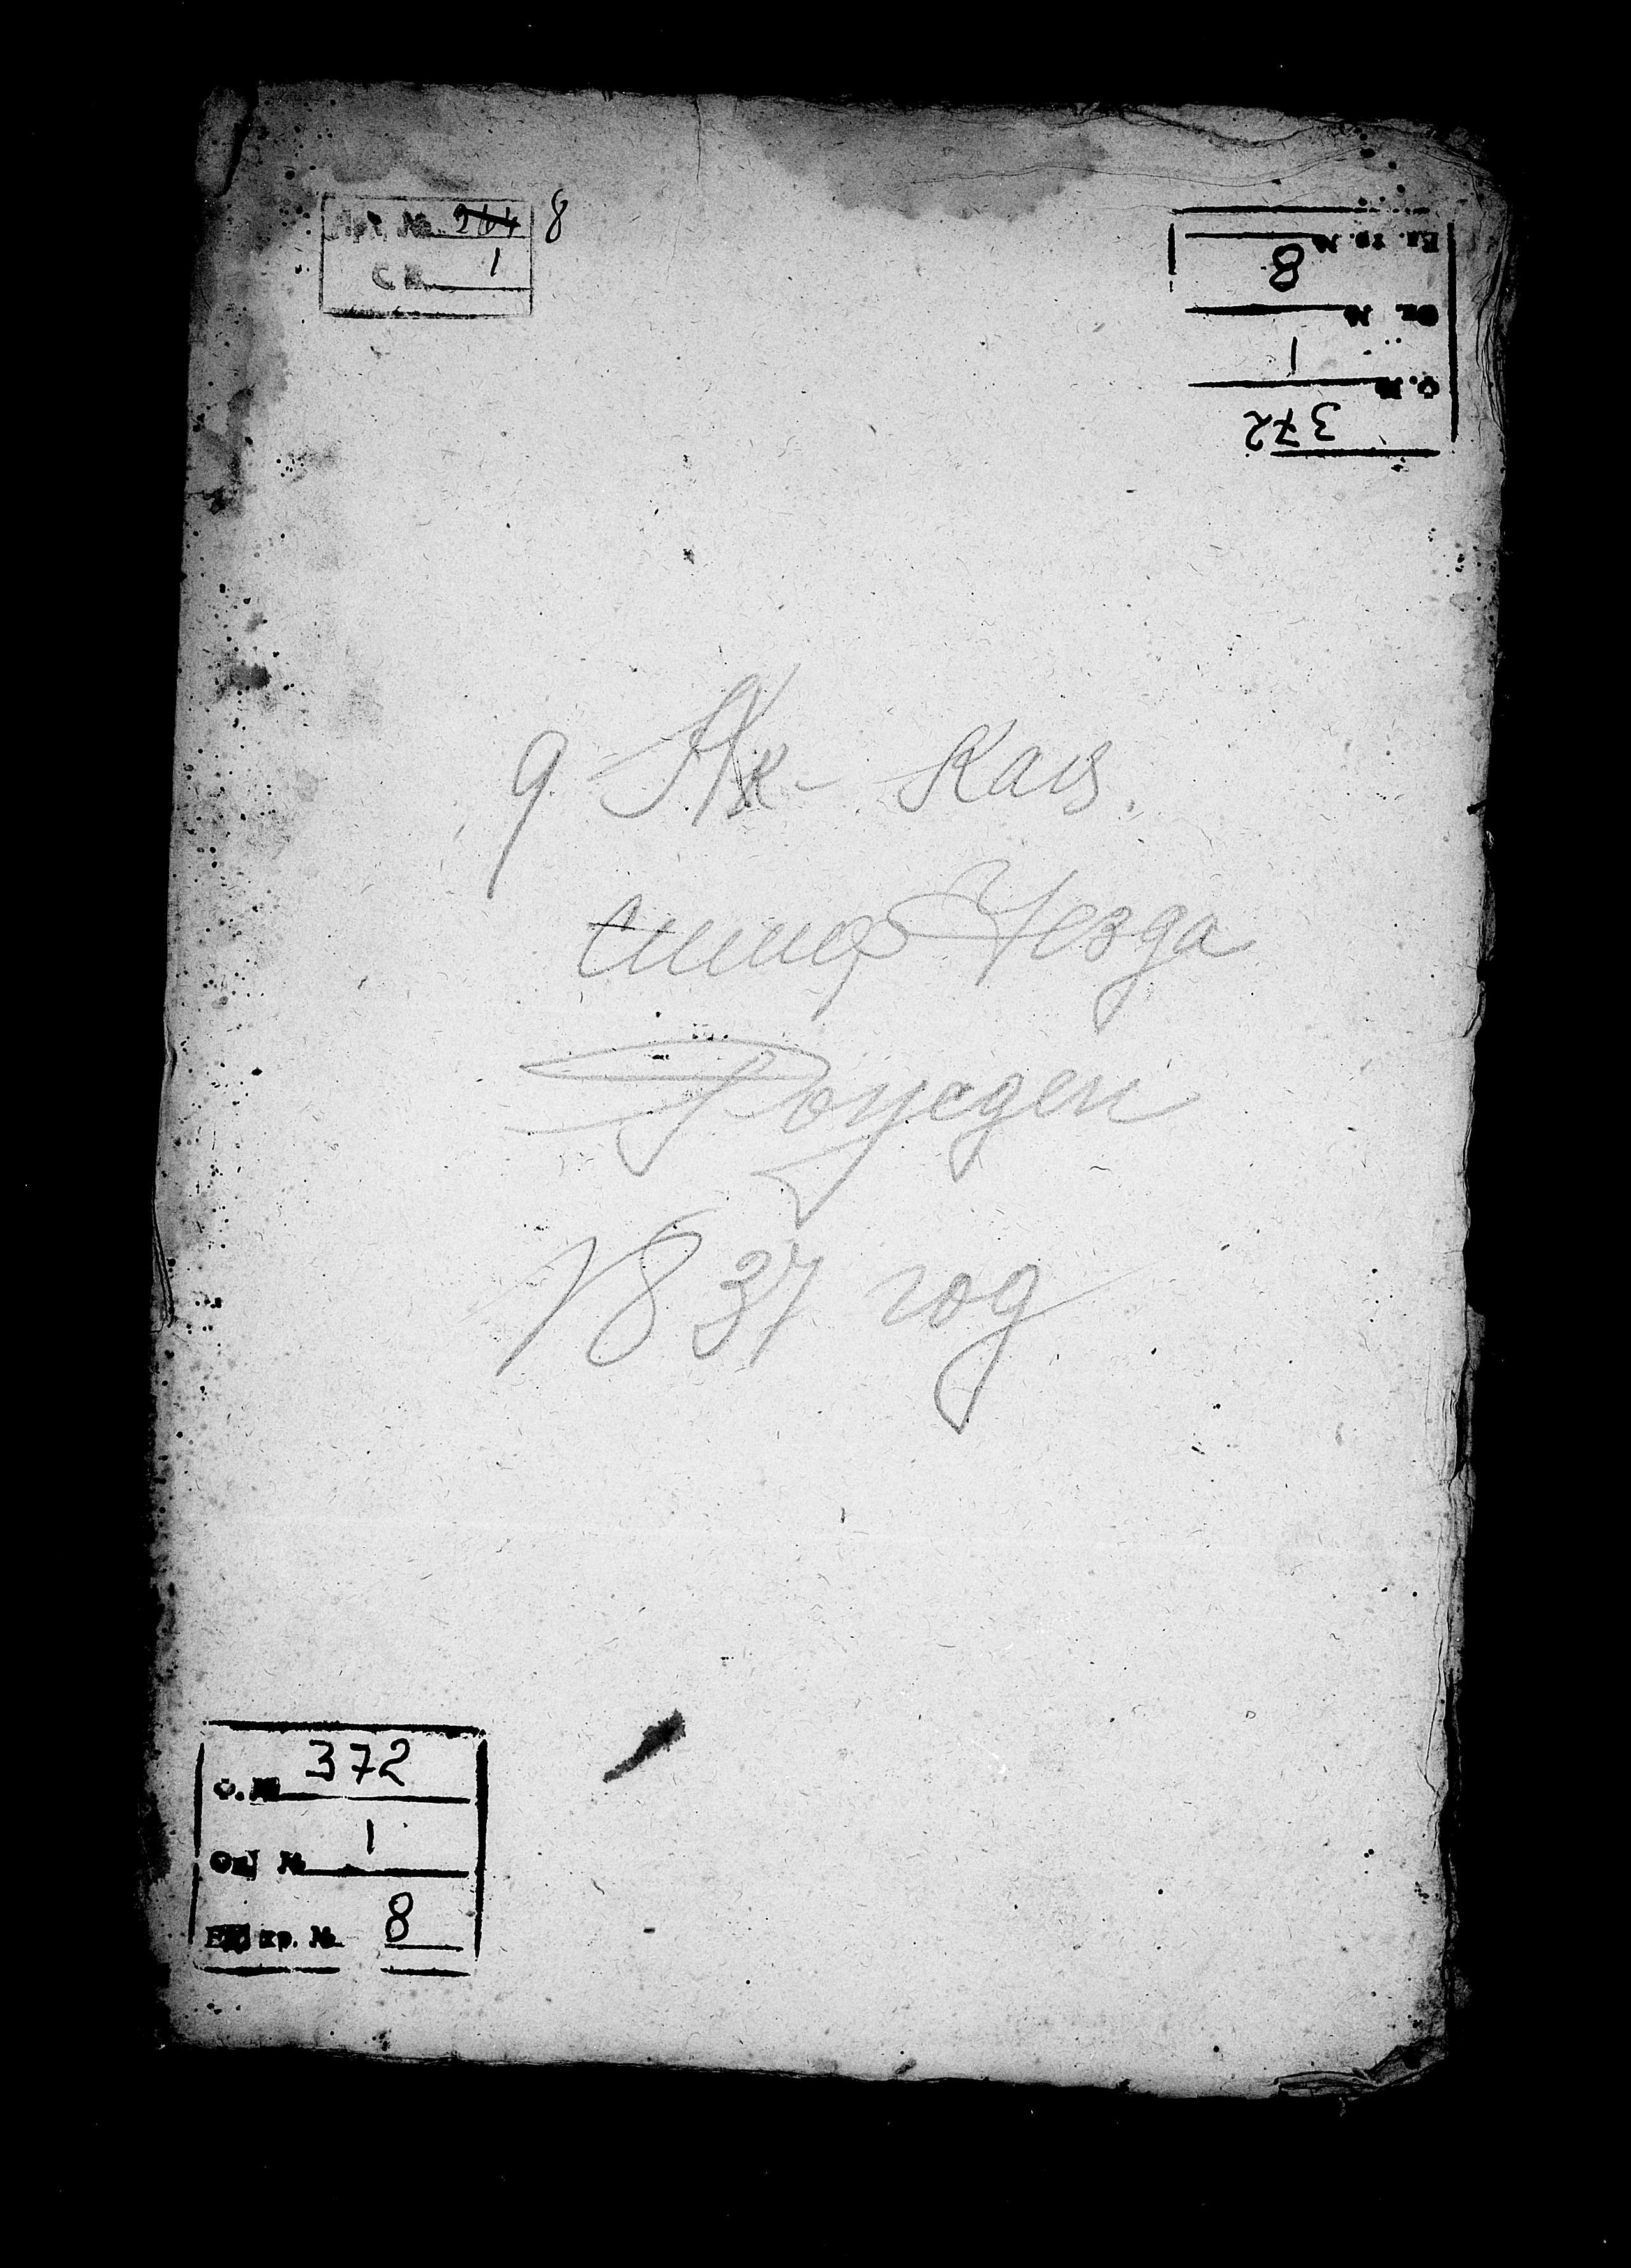 Арх. № 244 8
Св. 1
Ед. хр. № 8
Оп. № 1
Ф. № 372
д Ак- Кая.
симф Уезда
Рожден
1837 год
Ф. № 372
Оп. № 1
Ед. хр. № 8